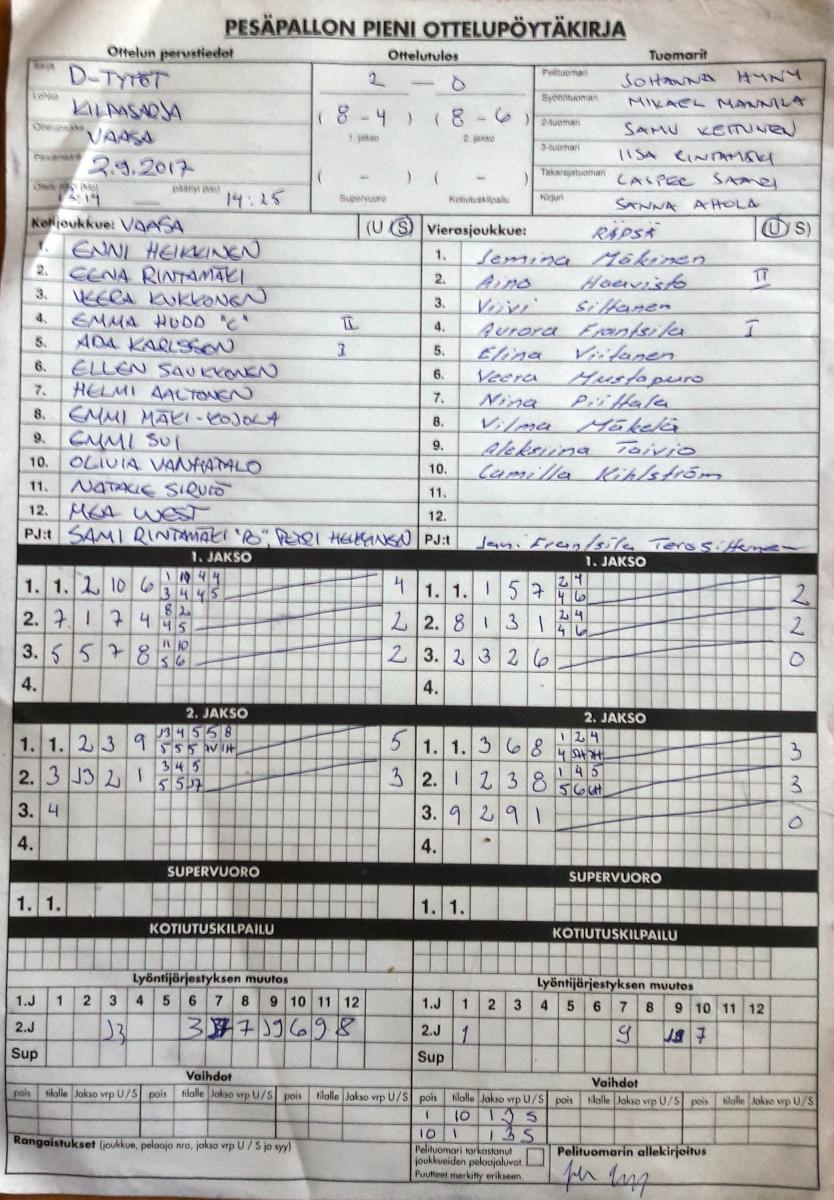 PESÄPALLON PIENI OTTELUPÖYTÄKIRJA
Ottelun perustiedot Ottelutulos Tuomarit
Sarja D-TYTÖT
Lohko KILPASARJA
Ottelupaikka VAASA
Päivämäärä 2.9.2017
päättyi (klo) 14:25
2 — 0
(8 - 4) (8 - 6)
1. jakso 2. jakso
( - ) ( - )
Supervuoro Kotiutuskilpailu
Pelituomari JOHANNA
Syöttötuomari MIKAEL MANNILA
2-tuomari SAMU KEITUNEN
3-tuomari IISA RINTAMÄKI
Takarajatuomari CASPER
Kirjuri SANNA AHOLA
Kotijoukkue: VAASA (U S)
1. ENNI HEIKKINEN
2. EENA RINTAMÄKI
3. VEERA KUKKONEN
4. EMMA HUDD "C" II
5. ADA KARLSSON I
6. ELLEN SAUKKONEN
7. HELMI AALTONEN
8. EMMI MÄKI-KOJOLA
9. EMMI SUI
10. OLIVIA VANHATALO
11. NATALIE SIRVIÖ
12. MEA WEST
PJ:t SAMI RINTAMÄKI "B", PETRI HEIKKINEN
Vierasjoukkue: RÄPSÄ (U S)
1. Jemina Mäkinen
2. Aino Haavisto II
3. Viivi Siltanen
4. Aurora Frantsila I
5. Elina Viitanen
6. Veera Mustapuro
7. Nina Piittala
8. Vilma Mäkelä
9. Aleksiina Taivio
10. Camilla Kihlström
11.
12.
PJ:t Jani Frantsila Tero Siltanen
1. JAKSO
1. 1. 2 10 6 1 10 4 4 4
3 4 4 5
2. 7 1 7 4 8 2 2
4 5
3. 5 5 7 8 11 10 2
5 6
4.
1. JAKSO
1. 1. 1 5 7 2 4 2
4 6
2. 8 1 3 1 2 4 2
4 6
3. 2 3 2 6 0
4.
2. JAKSO
1. 1. 2 3 9 J3 4 5 5 8 5
5 5 5
2. 3 J3 2 1 3 4 5 3
5 5
3. 4
4.
2. JAKSO
1. 1. 3 6 8 1 2 4 3
4
2. 1 2 3 8 1 4 5 3
5 6
3. 9 2 9 1 0
4.
SUPERVUORO
1. 1.
SUPERVUORO
1. 1.
KOTIUTUSKILPAILU
KOTIUTUSKILPAILU
Lyöntijärjestyksen muutos
1.J 1 2 3 4 5 6 7 8 9 10 11 12
2.J J3 3 7 J9 6 9 8
Sup
Lyöntijärjestyksen muutos
1.J 1 2 3 4 5 6 7 8 9 10 11 12
2.J 1 9 7
Sup
Vaihdot
pois tilalle Jakso vrp U/S pois tilalle Jakso vrp U/S pois tilalle Jakso vrp U/S
Vaihdot
pois tilalle Jakso vrp U/S pois tilalle Jakso vrp U/S pois tilalle Jakso vrp U/S
1 10 1 3 S
10 1 1 3 S
Rangaistukset (joukkue, pelaaja nro, jakso vrp U / S ja syy)
Pelituomari tarkastanut joukkueiden pelaajaluvat.
Puutteet merkitty erikseen.
Pelituomarin allekirjoitus